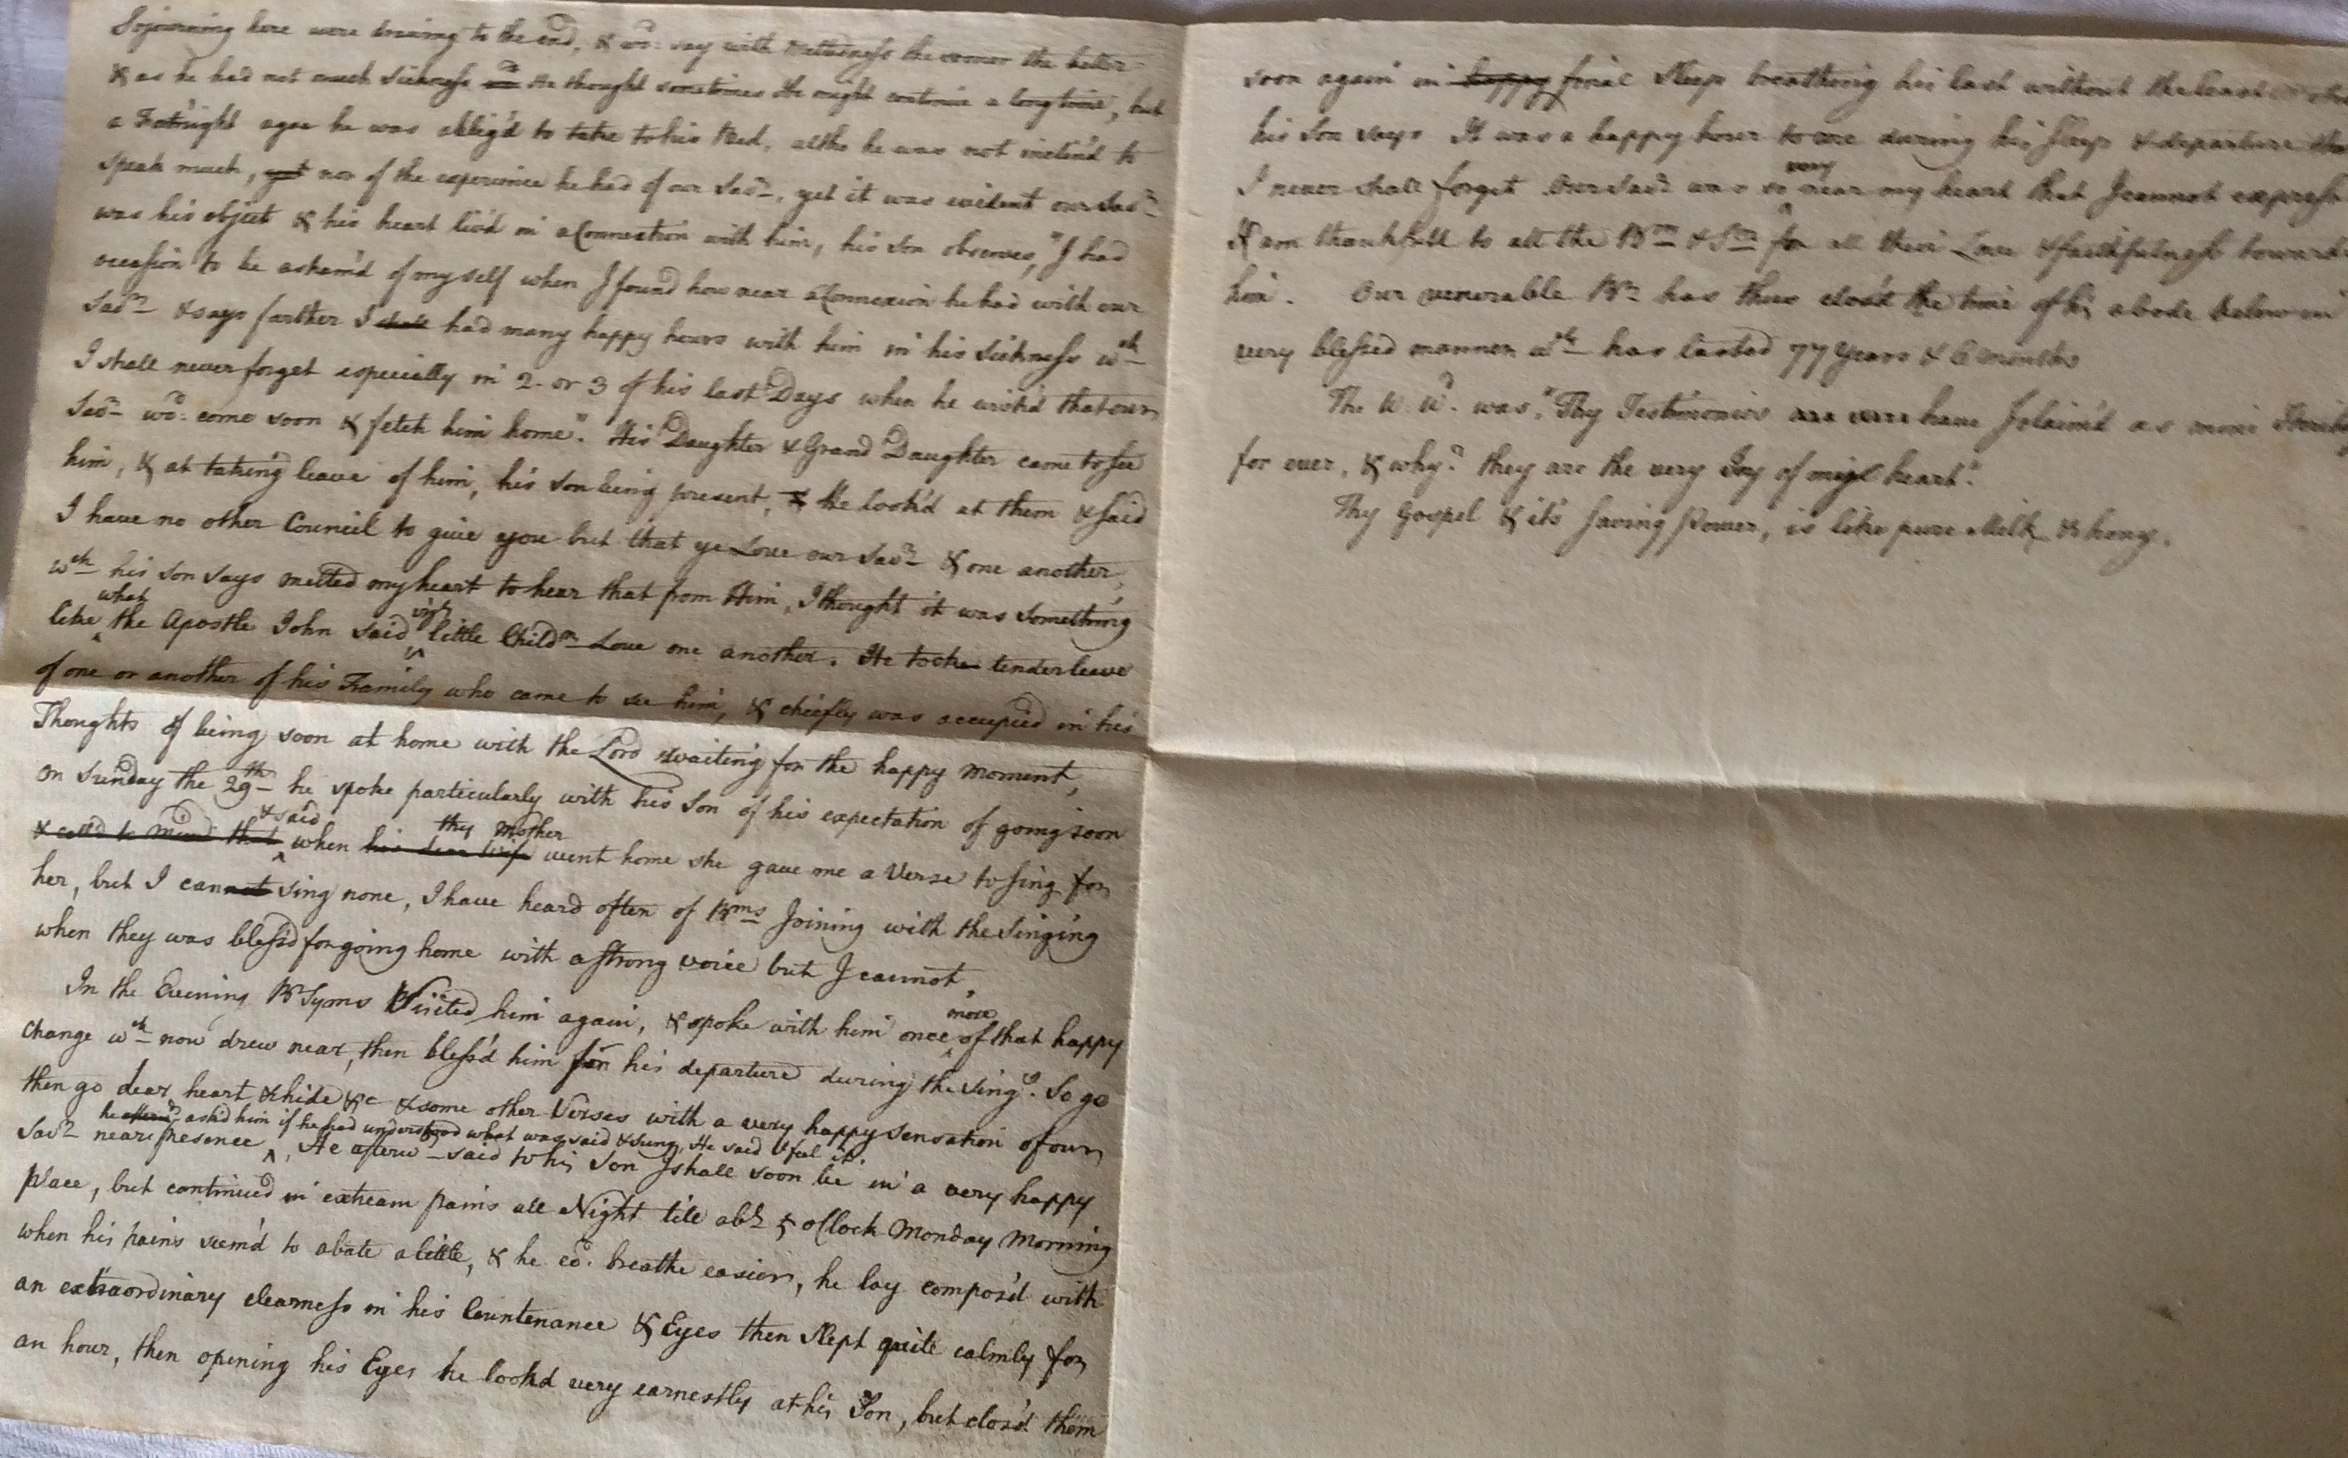 Sojourning here were drawing to the end, & wd: say with the sooner the better
& as he had not much Sickness He thought sometimes He might continue a long time, but
a Fortnight agoe he was oblig'd to take to his Bed, altho he was not inclin'd to
speak much, yet nor of the experience he had of our Savr, yet it was evident our Savr
was his object & his heart liv'd in a Connection with him, his Son observes, "I had
occasion to be asham'd of my self when I found how near a Connexion he had with our
Savr & says farther I shall had many happy hours with him in his Sickness wch
I shall never forget especially in 2 or 3 of his last Days when he wish'd that our
Savr wd: come soon & fetch him home". His Daughter & Grand Daughter came to see
him, & at taking leave of him, his Son being present, & He look'd at them & said
I have no other Council to give you but that ye Love our Savr & one another,
wch his Son says melted my heart to hear that from Him, I thought it was something
like what the Apostle John said, little Childrn Love one another. He tooke tender leave
of one or another of his Family who came to see him, & chiefly was occupied in his
Thoughts of being soon at home with the Lord waiting for the happy moment,
On Sunday the 29th he spoke particularly with his Son of his expectation of going soon
& call'd to mind that & said when his dear Wife thy Mother went home she gave me a Verse to sing for
her, but I cannot sing none, I have heard often of Brns Joining with the Singing
when they was bless'd for going home with a strong voice but I cannot.
In the Evening Br Syms Visited him again, & spoke with him once more of that happy
Change wch now drew near, then bless'd him for his departure during the Singg. So go
then go dear heart & hide &c & some other Verses with a very happy sensation of our
Savr near presence, he afterwd ask'd him if he had understood what was said & sung, He said I feel it. He afterwd said to his Son I shall soon be in a very happy
place, but continued in extream pains all Night till abt 5 oClock Monday Morning
when his pains seem'd to abate a little, & he cd: breathe easier, he lay compos'd with
an extraordinary clearness in his Countenance & Eyes then Slept quite calmly for
an hour, then opening his Eyes he look'd very earnestly at his Son, but clos'd them
soon again in happy final Sleep breathing his last without the least
his Son says It was a happy hour to me during his Sleep & departure
I never shall forget Our Savr was so very near my heart that I cannot express
& am thankfull to all the Brn & Srs for all their Love & faithfulness towards
him. Our venerable Br has thus clos'd the time of his abode below in
very blessed manner wch has lasted 77 Years & 6 months
The W. Wd. was, "Thy Testimonies have I claim'd as mine
for ever, & why? they are the very Joy of my heart".
Thy Gospel & it's saving Power, is like pure Milk & honey.